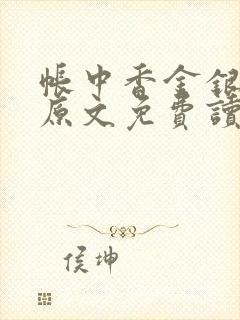 帳中香金銀
原文免費讀
侯坤